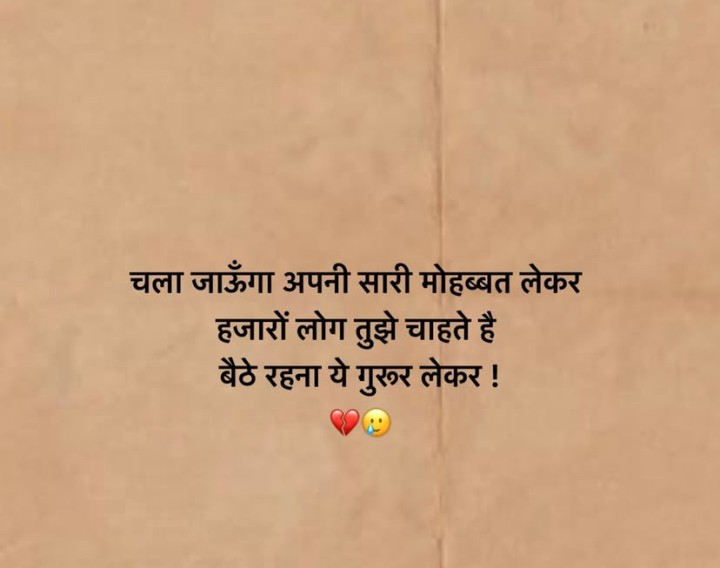 चला जाऊँगा अपनी सारी मोहब्बत लेकर
हजारों लोग तुझे चाहते है
बैठे रहना ये गुरूर लेकर !
💔🥲